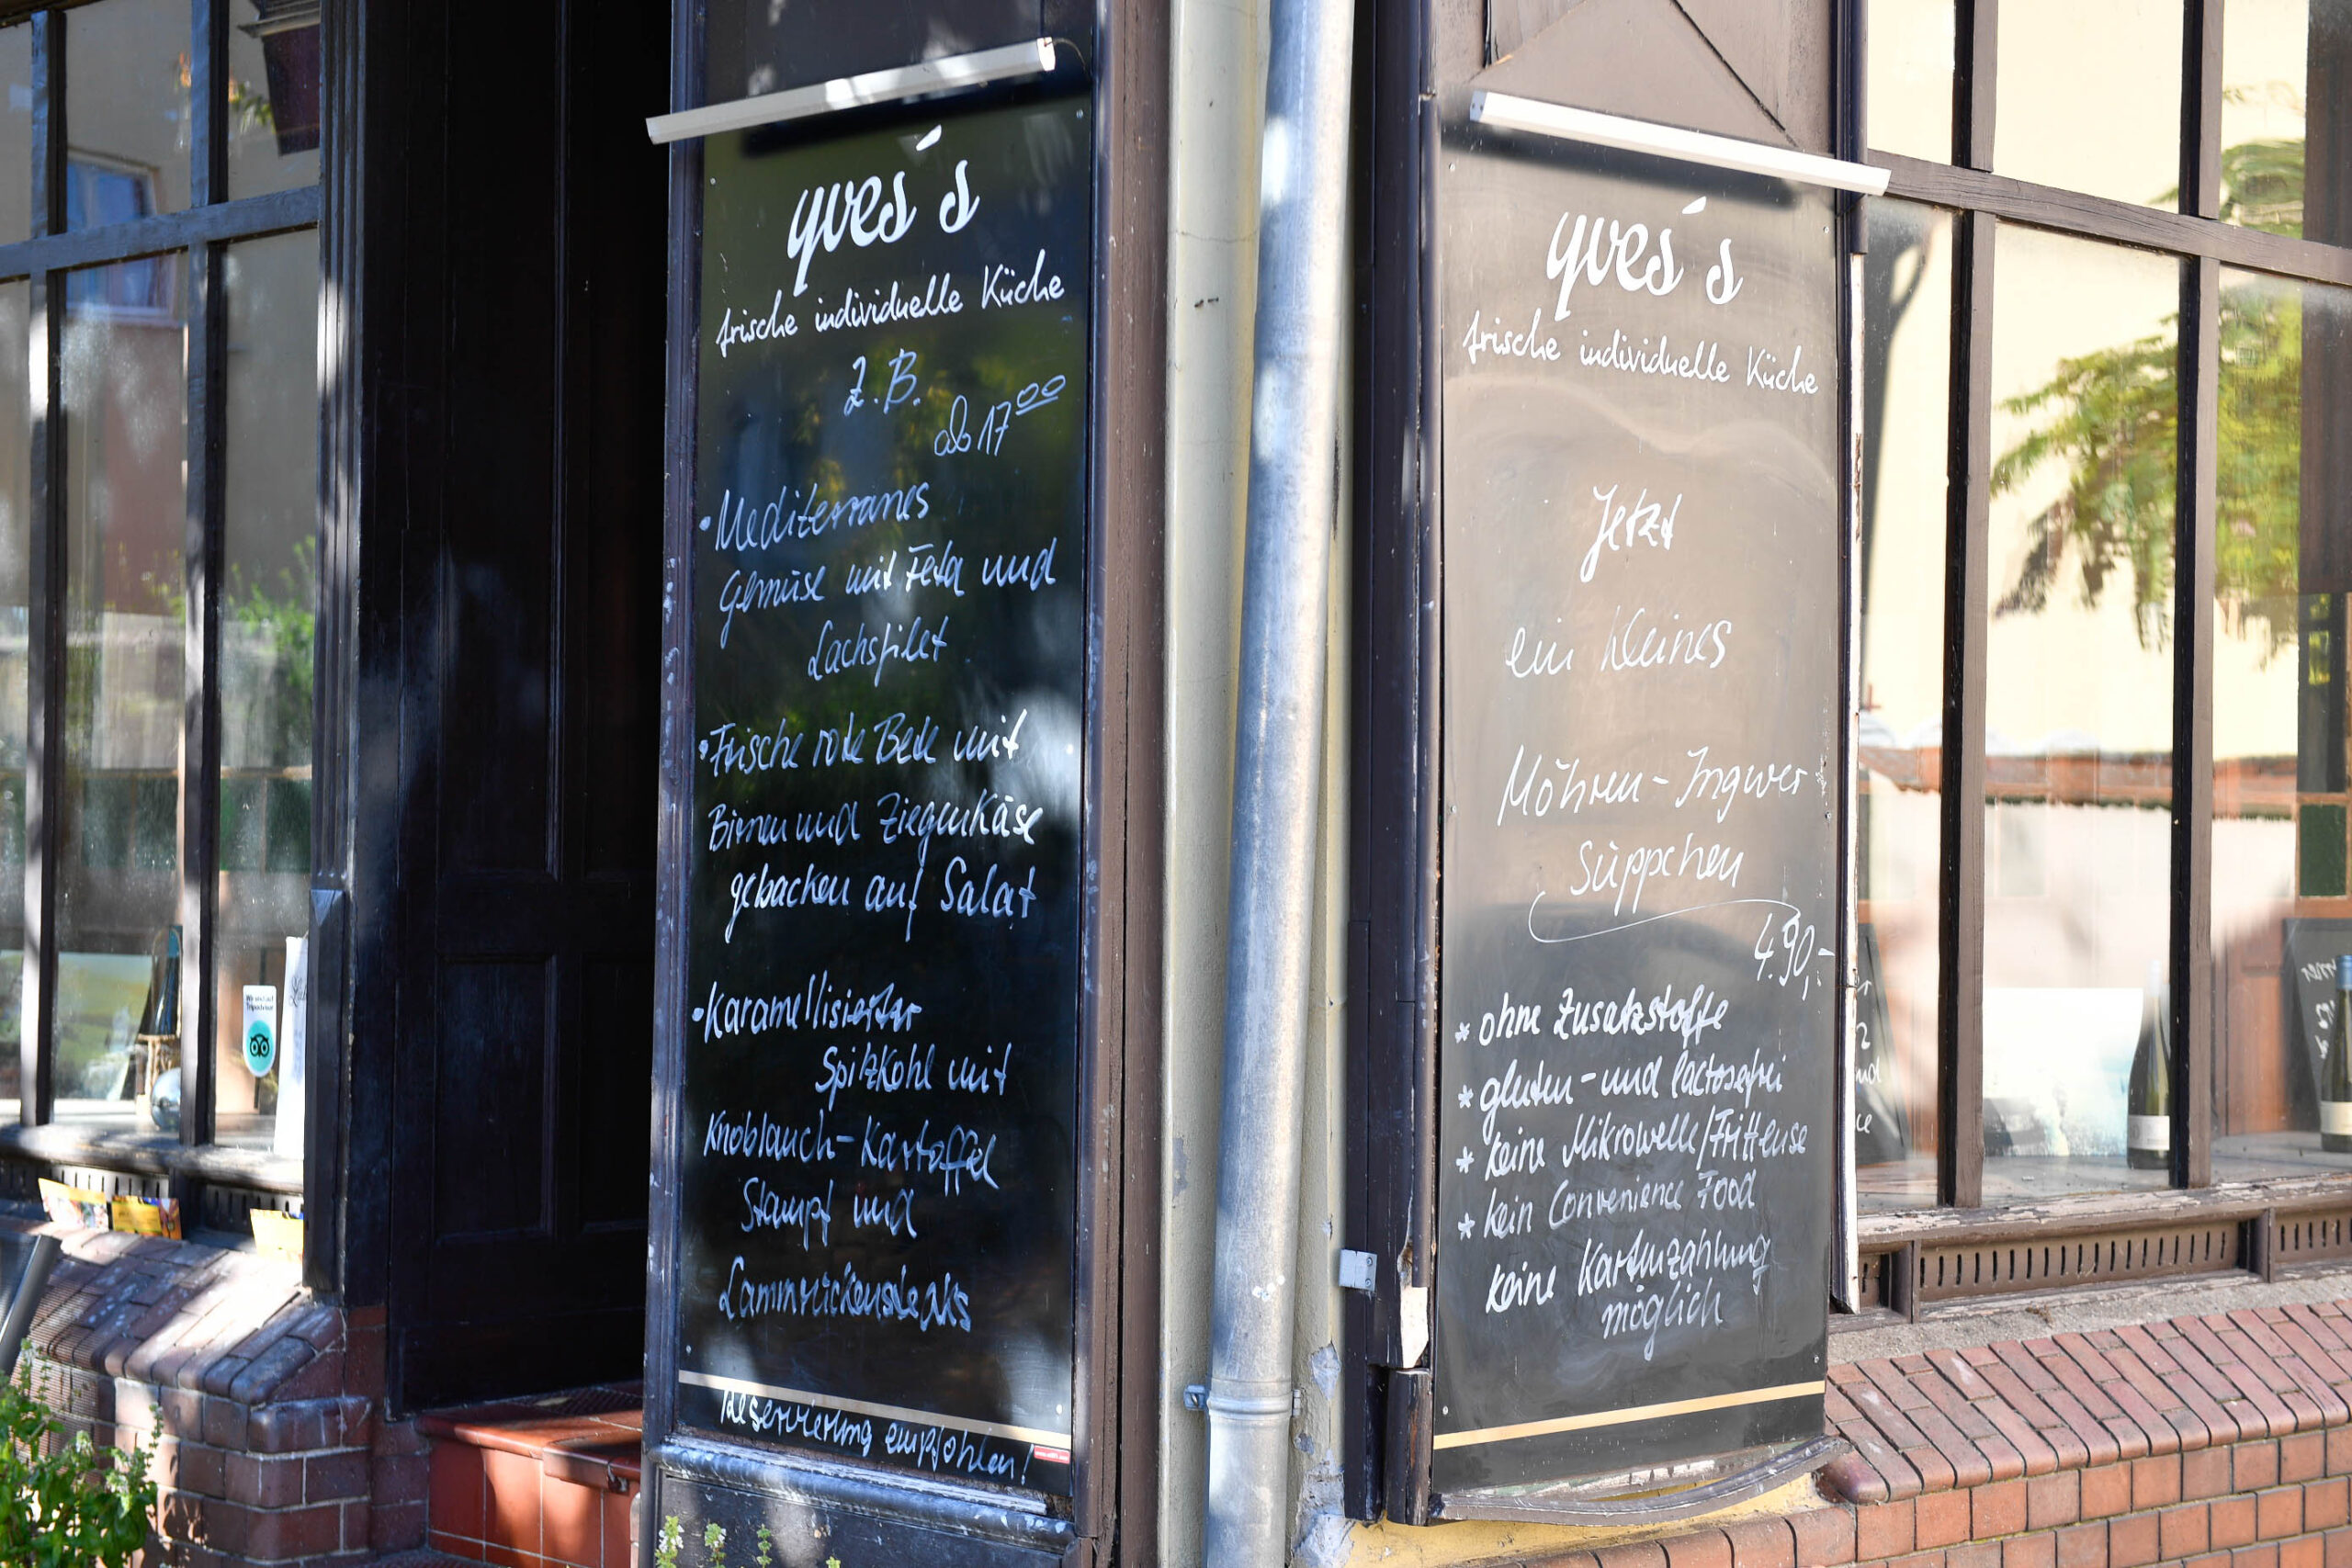 yves´s
frische individuelle Küche
z.B.
ab 17⁰⁰
• Mediterranes
Gemüse mit Feta und
Lachsfilet
• Frische rote Bete mit
Birnen und Ziegenkäse
gebacken auf Salat
• Karamellisierter
Spitzkohl mit
Knoblauch-Kartoffel
Stampf und
Lammrückensteaks
Reservierung empfohlen!
yves´s
frische individuelle Küche
Jetzt
ein kleines
Möhren-Ingwer
Süppchen
4.90,-
* ohne Zusatzstoffe
* gluten- und lactosefrei
* keine Mikrowelle/Fritteuse
* kein Convenience Food
keine Kartenzahlung
möglich